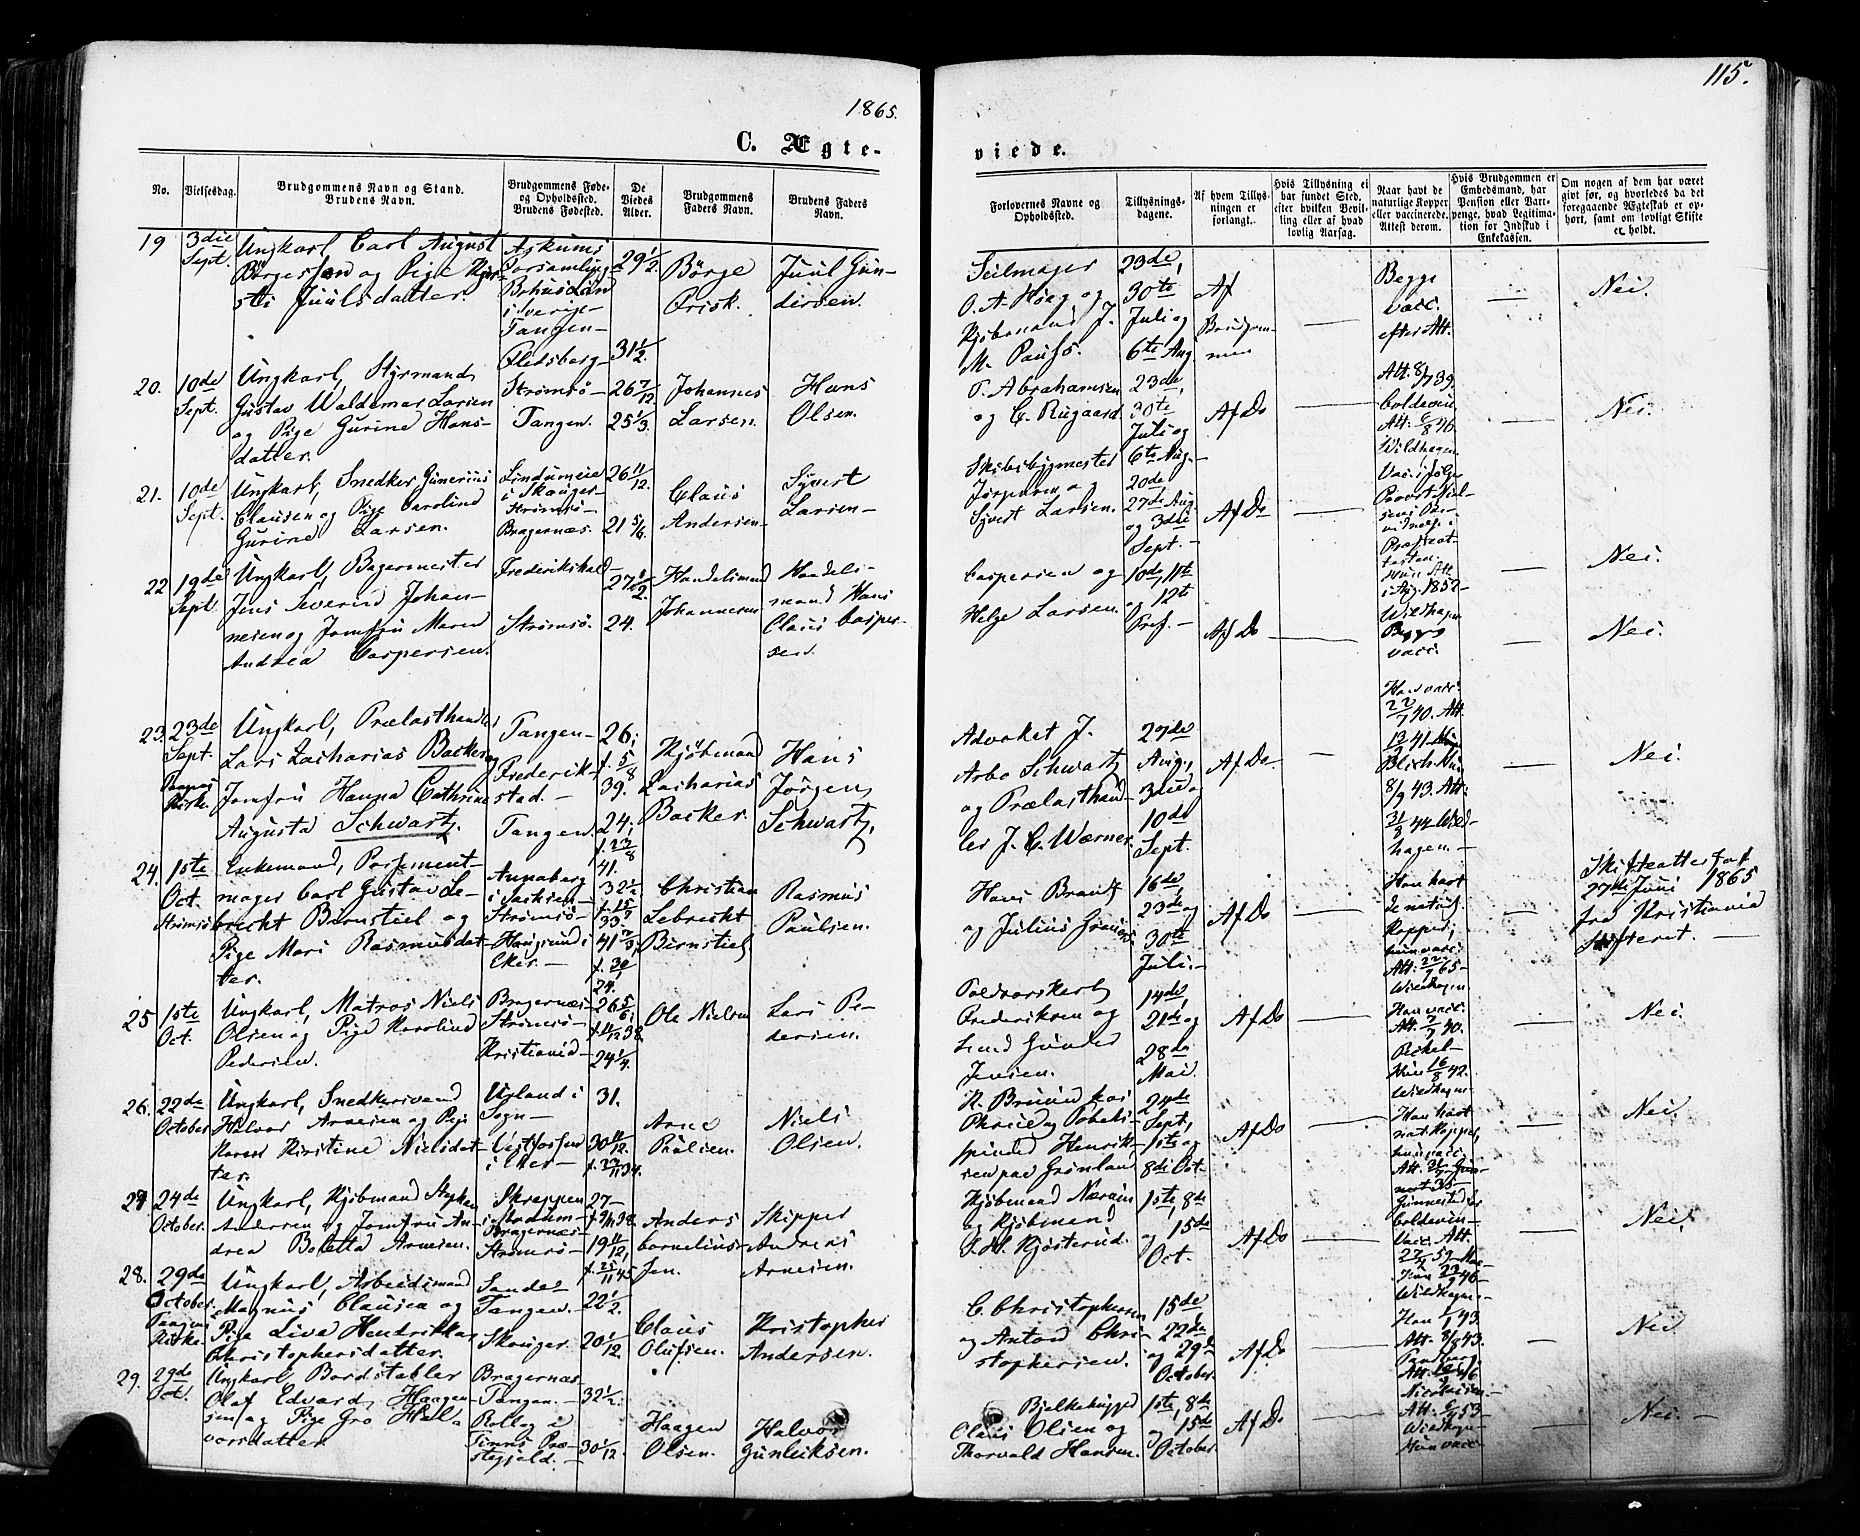 115.
1865.
C. Ægte-
viede.
No.
Vielsesdag.
Brudgommens Navn og Stand.
Brudens Navn.
Brudgommens Føde-
og Opholdssted.
Brudens Fødested.
De
Viedes
Alder.
Brudgommens
Faders Navn.
Brudens Faders
Navn.
Forlovernes Navne og
Opholdssted.
Tillysnings-
dagene.
Af hvem Tillys-
ningen er
forlangt.
Hvis Tillysning ei
har fundet Sted,
efter hvilken Bevil-
ling eller af hvad
lovlig Aarsag.
Naar havt de
naturlige Kopper
eller vaccinerede.
Attest derom.
Hvis Brudgommen er
Embedsmand, har
Pension eller Vart-
penge, hvad Legitima-
tion for Indskud i
Enkekassen.
Om nogen af dem har været
givt før, og hvorledes da det
foregaaende Ægteskab er op-
hørt, samt om lovligt Skifte
er holdt.
19
3die
Sept.
Ungkarl Carl August
Børgesson og Pige Kjer-
sti Juulsdatter.
Askums
Forsamling
Bohuslän
i Sverige
Tangen-
Fledsberg-
29 1/2.
31 1/2.
Børge
Frisk.
Juul Gun-
dersen.
Seilmager
O. A. Høeg og
Kjøbmand J.
M. Pauss.
23de,
30te
Juli og
6te Aug
Af
Brudgom-
men
Begge
vacc.
efter Att.
Nei.
20.
10de
Sept.
Ungkarl, Styrmand
Gustav Waldemar Larsen
og Pige Gurine Hans-
datter.
Strømsø-
Tangen.
26 7/12
25 1/3.
Johannes
Larsen.
Hans
Olsen.
T. Abrahamsen
og C. Rugaard
23de,
30te
Juli og
6te Aug.
Af Do
Att. 8/7 39.
Coldevin
Att. 6/8 46.
Wildhagen
Nei.
21.
10de
Sept.
Ungkarl, Snedker Gunerius
Clausen og Pige Caroline
Gurine Larsen.
Lindumeie
i Skouger-
Strømsø-
Bragernæs.
26 11/12.
21 5/6.
Claus
Andersen-
Syvert
Larsen-
Skibsbygmester
Jørgensen og
Syvert Larsen.
20de
27de Aug
og 3die
Sept.-
Af Do
Vacc. ifølge
Provst Niel-
sens
Nei.
22
19de
Sept.
Ungkarl, Bagermester
Jens Severin Johan-
nesen og Jomfru Maren
Andrea Caspersen.
Frederikshald
Strømsø.
27 1/2.
24.
Handelsmand
Johannesen
Handels-
mand Hans
Claus Casper-
sen.
Caspersen og
Helge Larsen.
10de, 11te
og 12te
Prof.-
Af Do
Hun Att.
i Aug. 1857-
Wildhagen
Begge
vacc.
Nei.
23.
23de
Sept.
Tangens
Kirke
Ungkarl, Prælasthandler
Lars Zacharias Backer og
Jomfru Hanna Cathrine
Augusta Schwartz.
Tangen-
Frederik-
stad.-
Tangen.
26,
f. 5/8
39.
24,
f. 23/8
41.
Kjøbmand
Zacharias
Backer
Hans
Jørgen
Schwartz,
Advokat J.
Arbo Schwartz
og Prælasthand-
ler J. C. Wærner
27de
Aug.,
3die og
10de
Sept.
Af Do.
Han vacc.
22/7 40. Att.
13/2 41
Blich. Hun
8/9 43. Att.
31/3 44 Wild-
hagen.-
Nei.
24.
1ste
Oct.
Strømsø
Enkemand, Possement-
mager Carl Gustav Le-
brecht Børnstiel og
Pige Mari Rasmusdat-
ter.
Annaberg
i Sachsen-
Strømsø-
Haugsund i
Eker.-
32 1/4
41 2/3,
f. 30/1
24.
Christian
Lebrecht
Børnstiel
Rasmus
Paulsen.
Hans Brandt
og Julius
16de,
23de og
30te
Juli.-
Af Do
Han havt
de naturl.
Kopper,
hun vacc.
Att. 22/7 65-
Wildhagen
Skifteattest af
27de Juni 1865
fra Kristiania
Skifteret.-
25
1ste
Oct.
Ungkarl, Matros Niels
Olsen og Pige Karoline
Pedersen.
Bragernæs-
Strømsø-
Kristiania-
26 5/6,
f. 11/12 38.
24 1/4.
Ole Nielsen
Lars Pe-
dersen.
Toldvaskerk
Frederiksen og
Svend Gunder
Jensen.
14de,
21de og
28de
Mai
Af Do
Han vacc.
Att. 7/7 40.
Hun 16/8 42.
Wildhagen
Nei.
26.
22de
October
Ungkarl, Snedkersvend
Halvor Arnesen og Pige
Karen Kirstine Nielsdat-
ter.
Urland i
Sogn-
Vestfossen
i Eker-
31.
30 11/12.
Arne
Paulsen.
Niels
Olsen.
Henrik-
sen paa Grønland
24de
Sept.,
1ste og
8de Oct.
Af Do
Han havt
nat. Kopper,
hun vacc.
Nei.
27
24de
October.
Ungkarl, Kjøbmand Styken
Andersen og Jomfru An-
drea Boletta Arnesen.
Bragernæs-
Strømsø-
27-
19 11/12,
f. 25/11 45
Anders
Cornelius-
sen.
Skipper
Andreas
Arnesen.
Kjøbmand
og Kjøbmand
Kjøsterud.
1ste, 8de
og 15de
Oct.
Af Do
Coldevin-
Vacc. Att
Wildhagen.
Nei.
28.
29de
October.
Tangens
Kirke.
Ungkarl, Arbeidsmand
Magnus Clausen og
Pige Live Hendrikka
Christophersdatter.
Sande-
Tangen.
Skouger.
22 1/2.
20 1/12.
Claus
Olufsen.
Kristopher
Andersen.
C. Christophersen
og Anton Chri-
stophersen.
15de
22de
og 29de
October.
Af Do.
Nei
29.
29de
Oct.
Ungkarl, Bordstabler
Olaf Edvard Haagen-
sen og Pige Gro Hal-
vorsdatter
Bragernæs
Tangen.-
Rollag i
Tinns Præ-
stegjeld.-
32 1/2.
30 1/12.
Haagen
Olsen.
Halvor
Gunleiksen.
Bjelkehugger
Olaus Olsen og
Thorvald Hansen.
1ste, 8de
og 15de
October.
Af Do
Att. 6/8 53-
Wildhgn-
Hun vacc
Nei.-